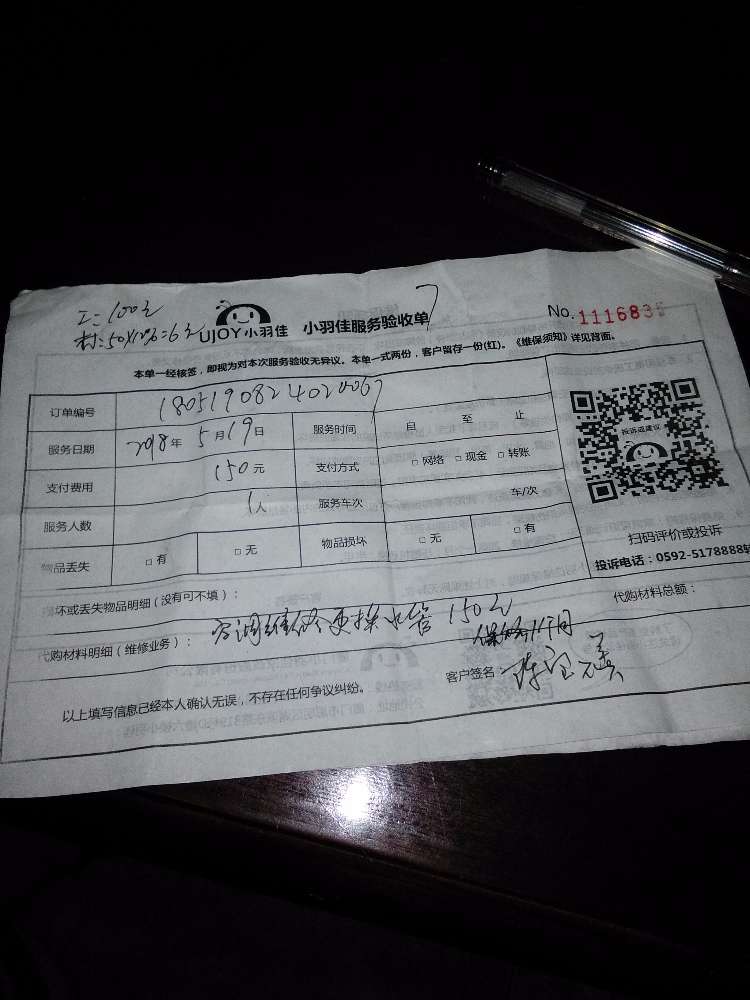 工:100元
材:50X12%=6元
UJOY小羽佳 小羽佳服务验收单
No.111683
本单一经核签,即视为对本次服务验收无异议。本单一式两份,客户留存一份(红)。《维保须知》详见背面。
订单编号 1805190824020067
服务日期 2018年5月19日 服务时间 自 至 止
支付费用 150元 支付方式 □网络 □现金 □转账
服务人数 1人 服务车次 车/次
物品丢失 □有 □无 物品损坏 □无 □有
投诉或建议
扫码评价或投诉
投诉电话:0592-5178888转
坏或丢失物品明细(没有可不填):
代购材料总额:
代购材料明细(维修业务): 空调维修更换水管 150元
保修1个月
以上填写信息已经本人确认无误,不存在任何争议纠纷。
客户签名: